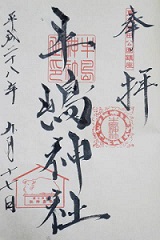 奉拝
牛嶋神社
平成二十八年
九月十七日